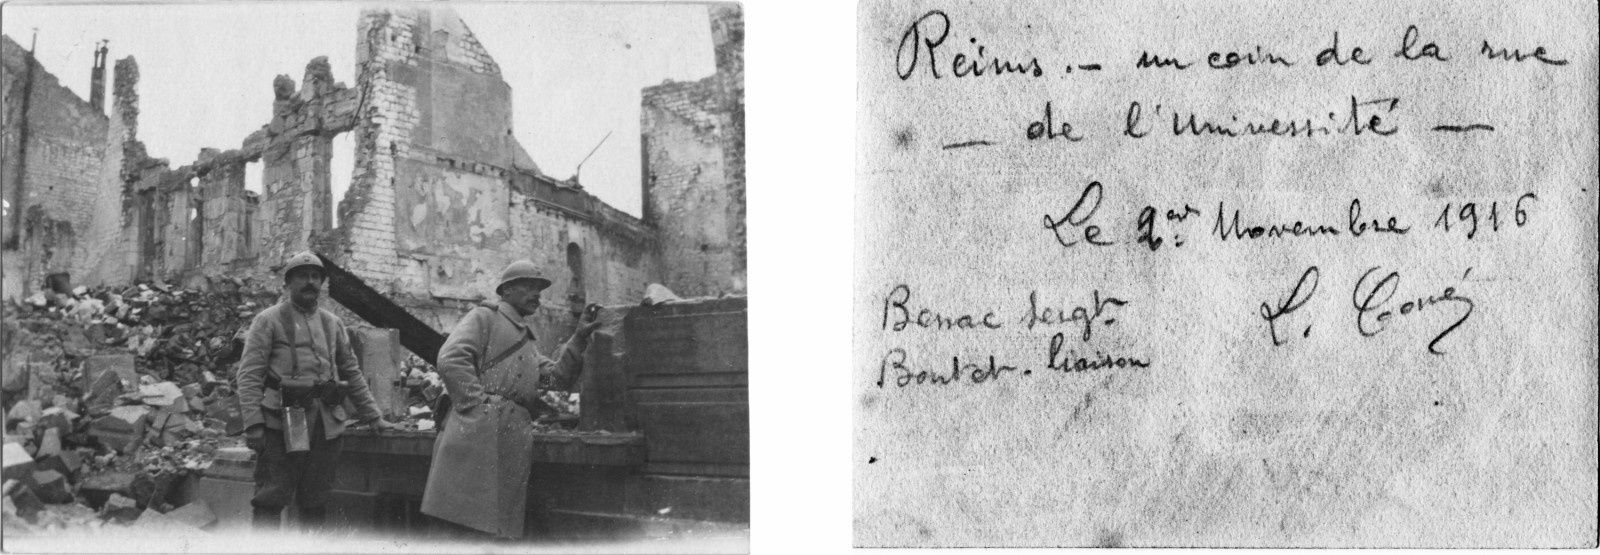 Reims. — un coin de la rue
— de l'Université —
Le 2 Novembre 1916
Bessac sergt.
L.
Boutet. liaison